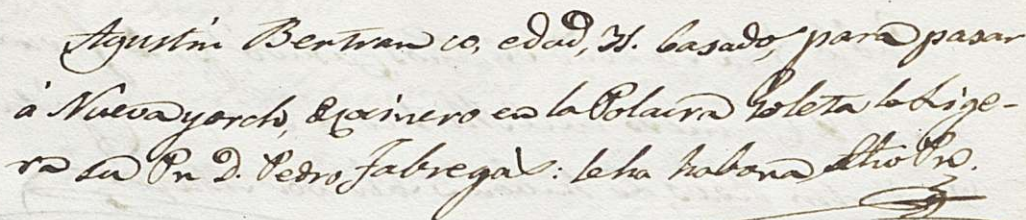 Agustin Bertran co, edad, 31. Casado, para pasar
á Nueva yorch, Marinero en la Polacra Goleta la Lige-
ra su Pn D. Pedro Fabregas: le ha habona dho Pn.